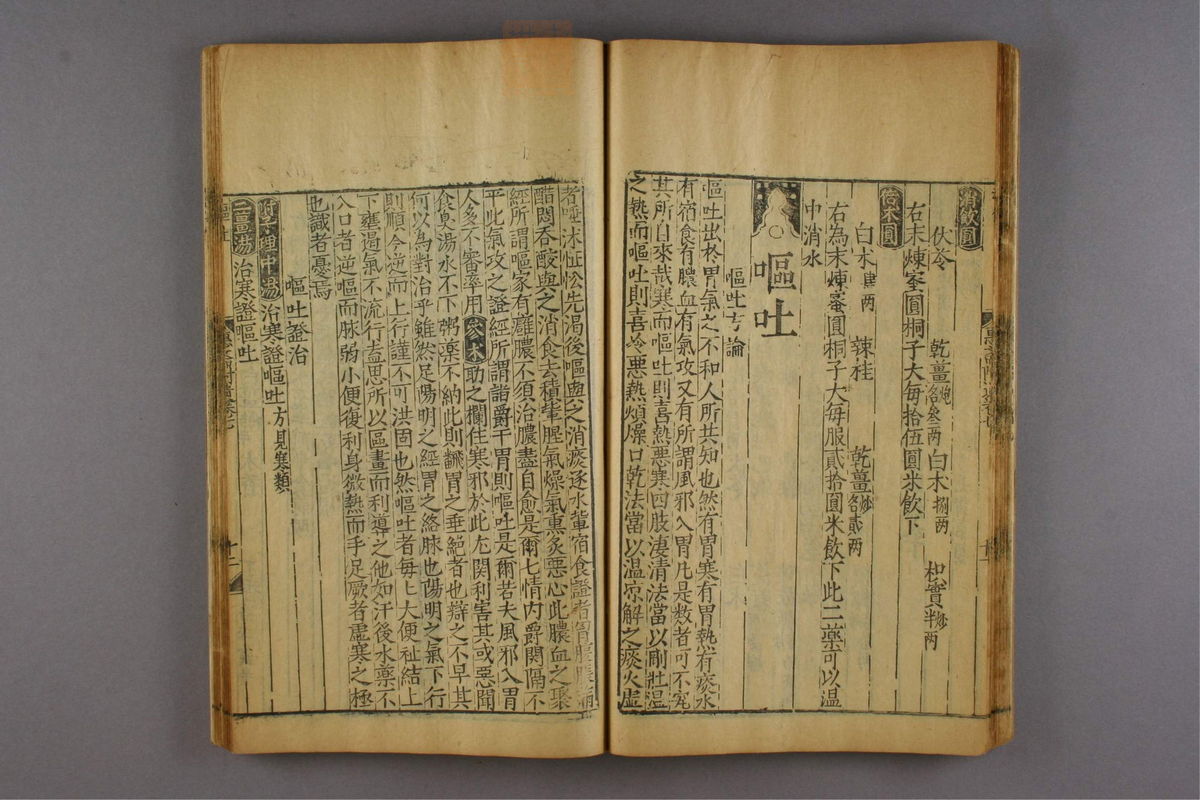 消飲圓
伏苓 乾薑炮各叁兩 白朮捌兩 枳實炒半兩
右末煉蜜圓桐子大每拾伍圓米飲下
倍朮圓
白朮肆兩 辣桂 乾薑炒各貳兩
右為末煉蜜圓桐子大每服貳拾圓米飲下此二藥可以溫
中消水
嘔吐
嘔吐方論
嘔吐出於胃氣之不和人所共知也然有胃寒有胃熱有痰水
有宿食有膿血有氣攻又有所謂風邪入胃凡是數者可不究
其所自來哉寒而嘔吐則喜熱惡寒四肢凄清法當以剛壯溫
之熱而嘔吐則喜冷惡熱煩燥口乾法當以溫凉解之痰火虛
者唾沫怔忪先渴後嘔與之消痰逐水軰宿食證者胃脘脹滿
醋悶吞酸與之消食去積軰腥氣燥氣熏炙惡心此膿血之聚
經所謂嘔家有癰膿不須治膿盡自愈是爾七情內爵関隔不
平此氣攻之證經所謂諧爵干胃則嘔吐是爾若夫風邪入胃
人多不審率用參朮助之攔住寒邪於此尤関利害其或惡聞
食臭湯水不下粥藥不納此則飜胃之垂絕者也辯之不早其
何以為對治乎雖然足陽明之經胃之絡脉也陽明之氣下行
則順今逆而上行謹不可洪固也然嘔吐者每々大便祉結上
下壅遏氣不流行盍思所以區畫而利導之他如汗後水藥不
入口者逆嘔而脉弱小便復利身微熱而手足厥者虛寒之極
也識者憂焉
嘔吐證治
理中湯治寒證嘔吐方見寒類
二薑湯治寒證嘔吐